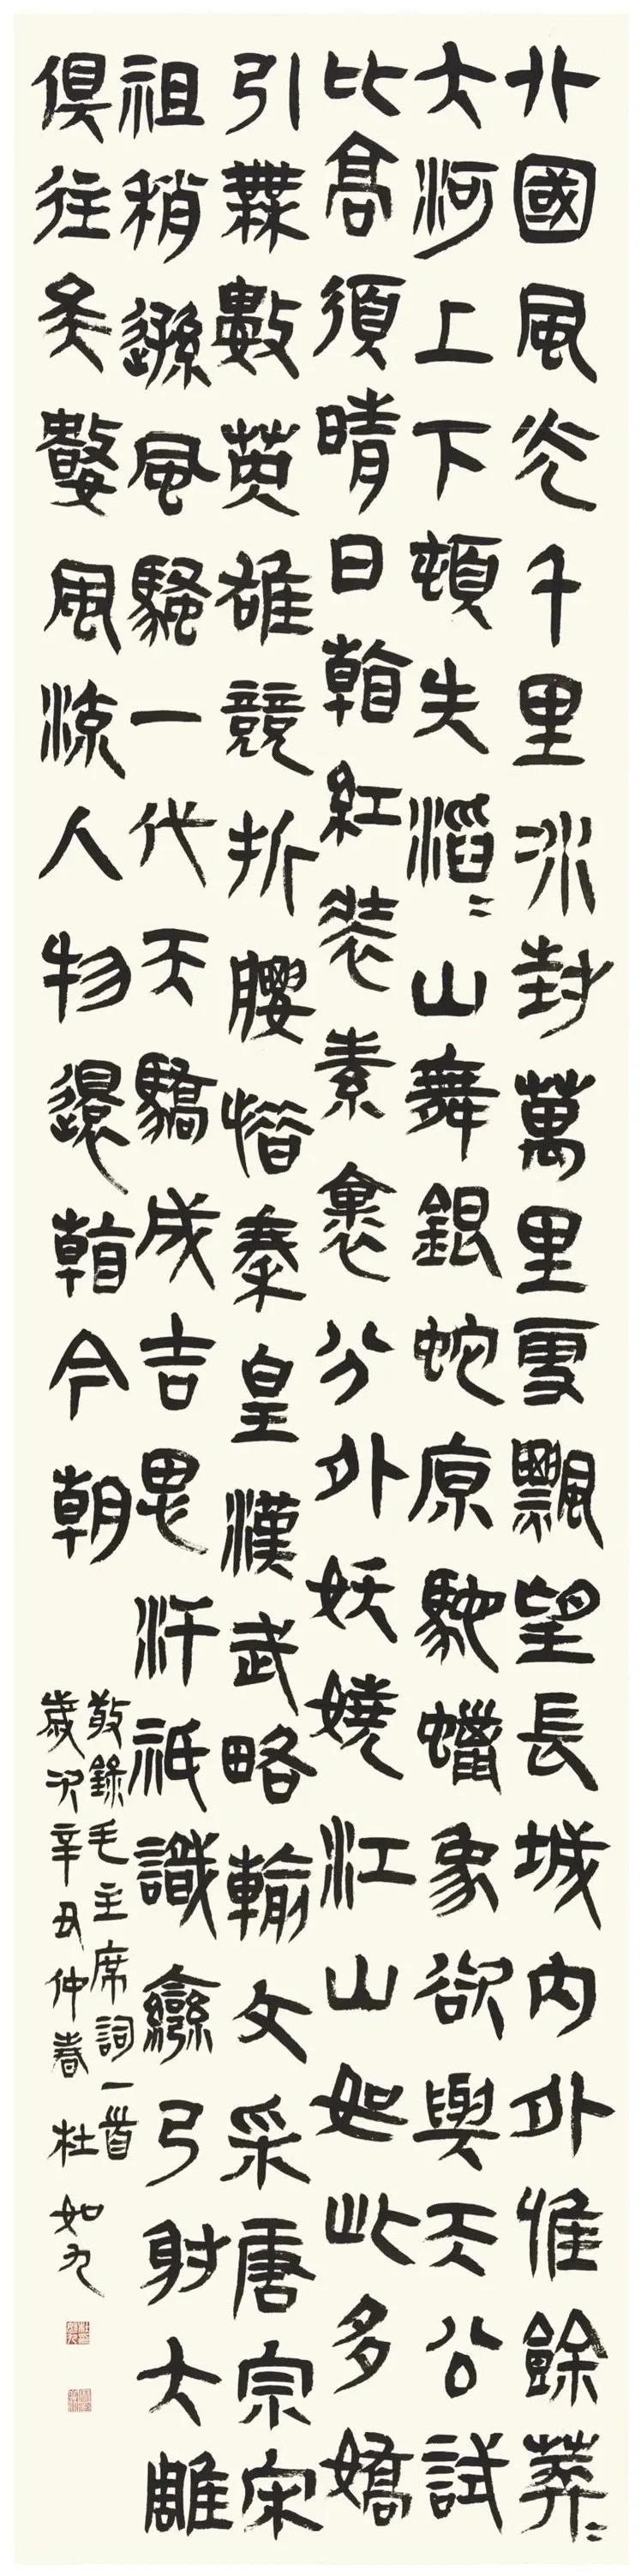 北國風光千里冰封萬里雪飄望長城內外惟餘莽〻
大河上下頓失滔〻山舞銀蛇原馳蠟象欲與天公試
比高須晴日看紅裝素裹分外妖嬈江山如此多嬌
引無數英雄競折腰惜秦皇漢武略輸文采唐宗宋
祖稍遜風騷一代天驕成吉思汗祇識彎弓射大雕
俱往矣數風流人物還看今朝
敬錄毛主席詞一首
歲次辛丑仲春 杜如九